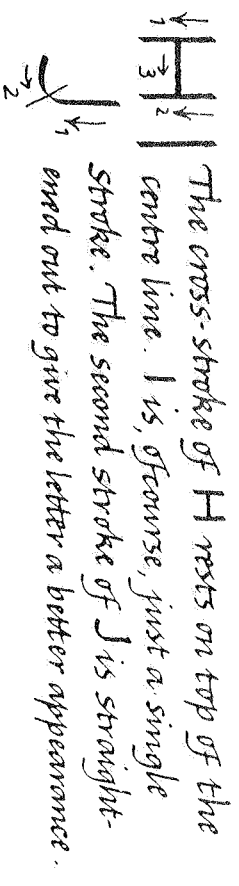 H I The cross-stroke of H rests on top of the
centre line. I is, ofcourse, just a single
J stroke. The second stroke of J is straight-
ened out to give the letter a better appearance.
1 2 3
1 2